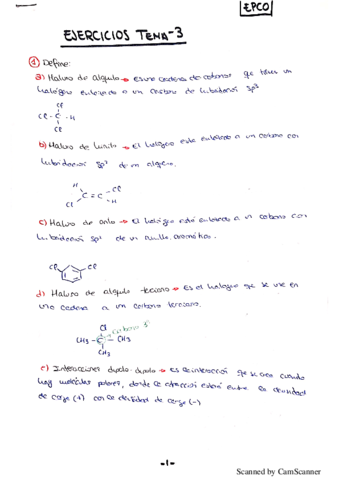 EPCO
EJERCICIOS TEMA-3
① Define:
a) Haluro de alquilo → Es una cadena de carbonos que tiene un
halógeno enlazado a un carbono de hibridación sp³
Cl
Cl-C-H
Cl
b) Haluro de vinilo → El halógeno está enlazado a un carbono con
hibridación sp² de un alqueno.
H Cl
C=C
Cl H
c) Haluro de arilo → El halógeno está enlazado a un carbono con
hibridación sp² de un anillo aromático.
Cl Cl
d) Haluro de alquilo terciario → Es el halógeno que se une en
una cadena a un carbono terciario.
Cl carbono 3º
CH₃-C-CH₃
CH₃
e) Interacciones dipolo-dipolo → Es la interacción que se crea cuando
hay moléculas polares, donde la atracción estará entre la densidad
de carga (+) con la densidad de carga (-)
-1-
Scanned by CamScanner